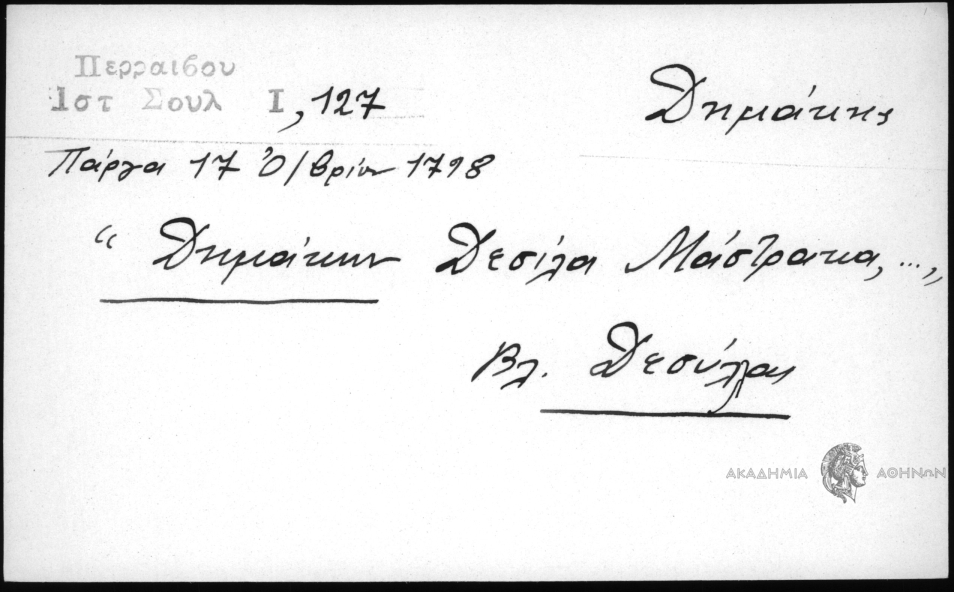 Περραιβου
Ιστ Σουλ Ι, 127
Δημάκης
Πάργα 17 Ὀ/βρίου 1798
“ Δημάκην Δεσίλα Μάστρακα, ...„
Βλ. Δεσύλλας
ΑΚΑΔΗΜΙΑ ΑΘΗΝΩΝ